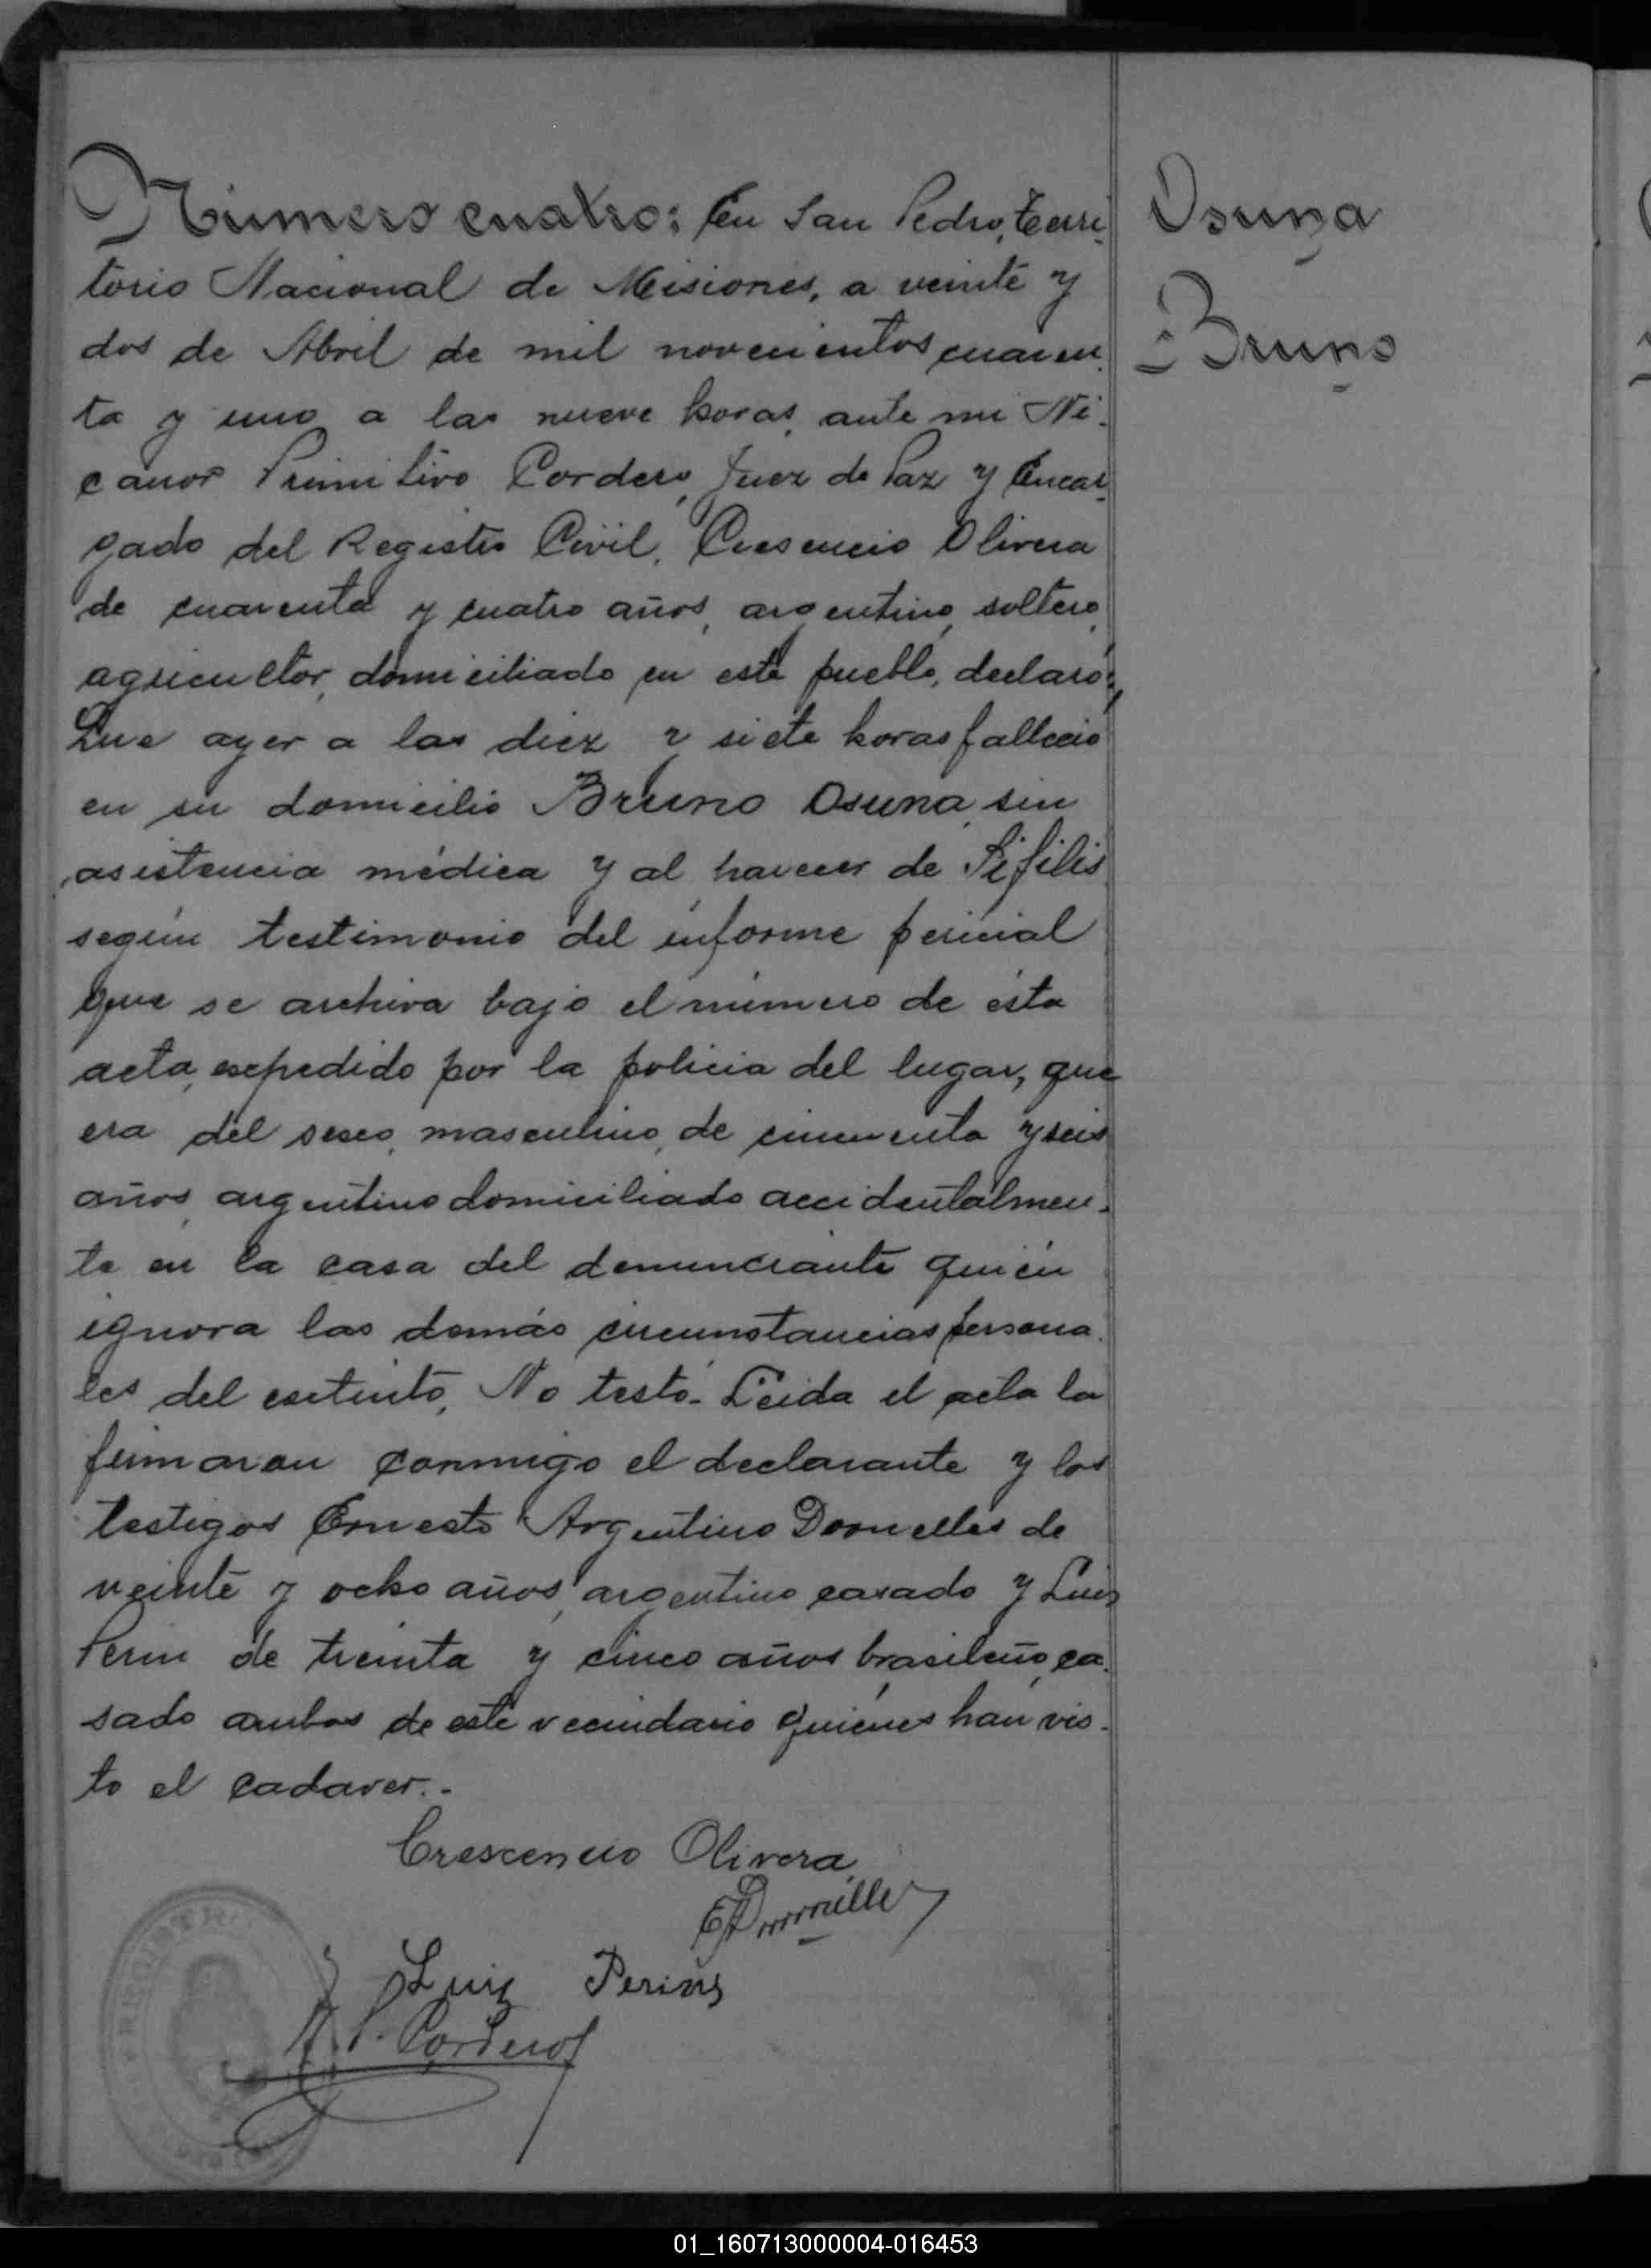 Número cuatro: En San Pedro, Terri-
torio Nacional de Misiones, a veinte y
dos de Abril de mil novecientos cuaren-
ta y uno a las nueve horas, ante mi Ni-
canor Primitivo Cordero, Juez de Paz y Encar-
gado del Registro Civil, Cresencio Olivera
de cuarenta y cuatro años, argentino, soltero,
agricultor, domiciliado en este pueblo, declaró:
Que ayer a las diez y siete horas falleció
en su domicilio Bruno Osuna, sin
asistencia médica y al parecer de Sífilis
según testimonio del informe pericial
que se archiva bajo el número de ésta
acta, expedido por la policia del lugar, que
era del sexo, masculino, de cincuenta y seis
años, argentino domiciliado accidentalmen-
te en la casa del denunciante quién
ignora las demás circunstancias persona-
les del extinto, No testó- Leida el acta la
firmaron conmigo el declarante y los
testigos Ernesto Argentino Dornelles de
veinte y ocho años, argentino casado y Luis
Perin de treinta y cinco años brasileño, ca-
sado ambos de este vecindario quiénes han vis-
to el cadaver.-
Crescencio Olivera
Luis Perin
N. P. Cordero
REGISTRO
Osuna
Bruno
01_160713000004-016453